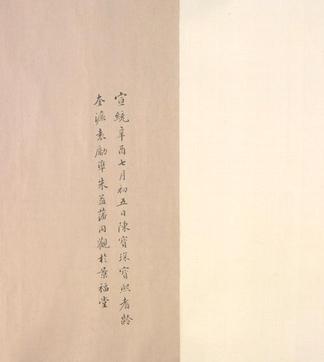 宣統辛酉七月初五日陳寶琛寶熙耆齡
袁勵準朱益藩同觀於景福堂